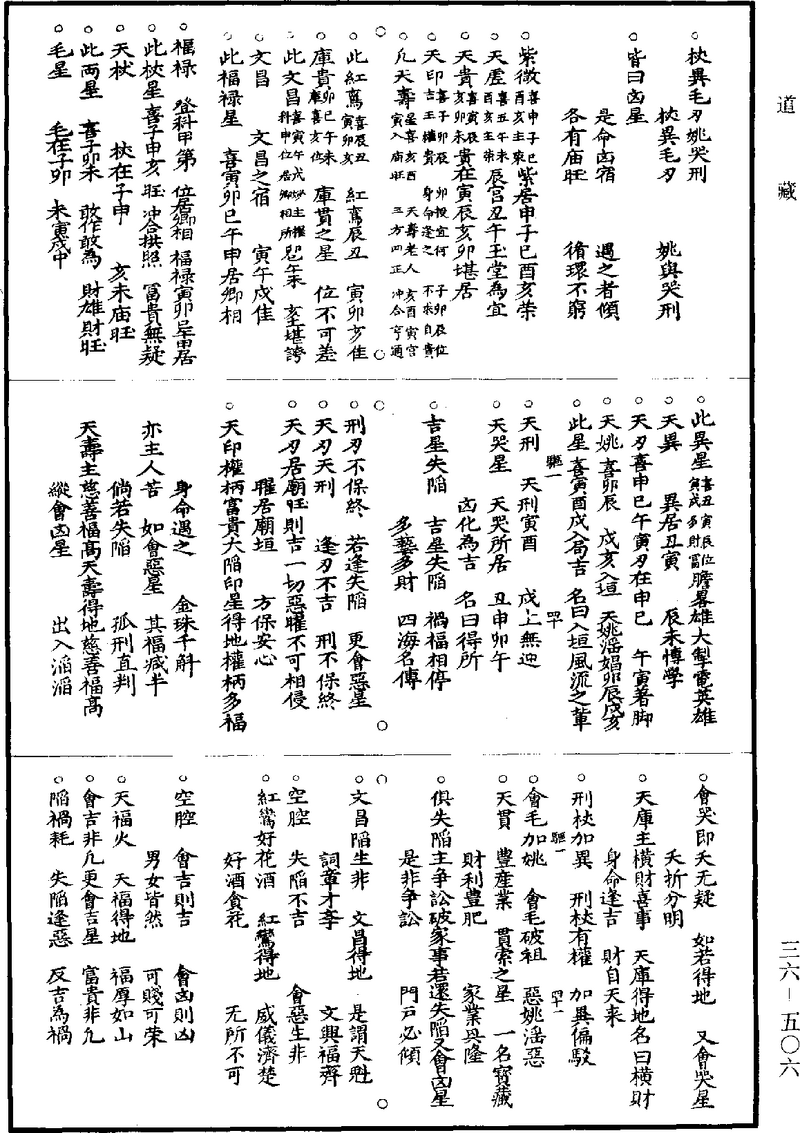 道藏
杖異毛刃姚哭刑
杖異毛刃 姚與哭刑
皆曰凶星
是命凶宿 遇之者傾
各有庙旺 循環不窮
紫微喜申子巳酉亥主東紫居申子巳酉亥荣
天虚喜丑午未酉亥主荣辰宫丑午玉堂為宜
天貴喜寅辰亥卯未貴在寅辰亥卯堪居
天印喜子卯辰吉王權貴 卯授宜何身命逢之 子卯辰位不求自貴
凢天壽是喜亥酉寅入庙旺 天壽老人三方四正 亥酉寅宫冲合亨通
此紅鸞喜辰丑寅卯亥 紅鸞辰丑 寅卯亥佳
庫貫卯巳午未庫喜亥位 庫貫之星 位不可差
此文昌喜寅午戌卿主權科甲位居卿相所 卯午未 亥堪誇
文昌 文昌之宿 寅午戌佳
此福禄星 喜寅卯巳午申居卿相
福禄 登科甲第 位居卿相 福禄寅卯 申居
此杖星喜子申亥旺冲合拱照 富貴無疑
天杖 杖在子申 亥未庙旺
此両星 喜子卯未 敢作敢為 財雄財旺
毛星 毛在子卯 未寅戌中
此異星喜丑寅辰位寅戌多財富膽畧雄大掣電英雄
天異 異居丑寅 辰未博學
天刃喜申巳午寅刃在申巳 午寅著脚
天姚喜卯辰 戌亥入垣 天姚滛娼卯辰戌亥
此星喜寅酉戌入局吉 名曰入垣風流之輩
天刑 天刑寅酉 戌上無迎
天哭星 天哭所居 丑申卯午
凶化為吉 名曰得所
吉星失陥 吉星失陥 禍福相停
多藝多財 四海名傳
刑刃不保終 若逢失陥 更會惡星
天刃天刑 逢刃不吉 刑不保終
天刃居廟旺則吉一切惡曜不可相侵
曜居廟垣 方保安心
天印權柄富貴大陥印星得地權柄多福
身命遇之 金珠千斛
亦主人苦 如會惡星 其福减半
倘若失陥 孤刑直判
天壽主慈善福高天壽得地慈善福高
縱會凶星 出入滔滔
會哭即夭无疑 如若得地 又會哭星
夭折分明
天庫主横財喜事 天庫得地名曰横財
身命逢吉 財自天来
刑杖加異 刑杖有權 加異偏駁
會毛加姚 會毛破祖 惡姚滛惡
天貫 豊産業 貫索之星 一名寳藏
財利豊肥 家業興隆
俱失陥主争訟破家事若還失陥又會凶星
是非争訟 門戸必傾
文昌陥生非 文昌得地 是謂天魁
詞章才李 文興福齊
空腔 失陥不吉 會惡生非
紅鸞好花酒 紅鸞得地 威儀濟楚
好酒貪花 無所不可
空腔 會吉則吉 會凶則凶
男女皆然 可賤可荣
天福火 天福得地 福厚如山
會吉非凢更會吉星 富貴非凢
陥禍耗 失陥逢惡 反吉為禍
三六－五〇六